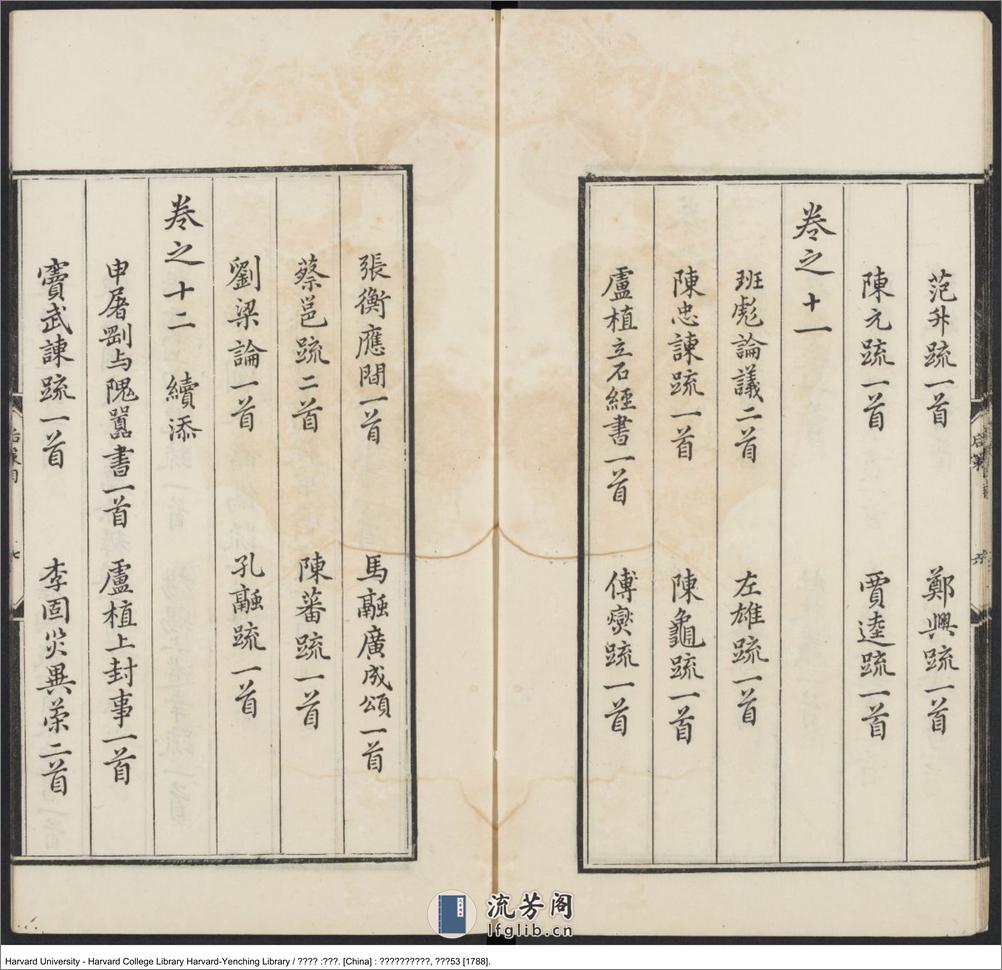 范升疏一首 鄭興疏一首
陳元疏一首 賈逵疏一首
卷之十一
班彪論議二首 左雄疏一首
陳忠諫疏一首 陳龜疏一首
盧植立石經書一首 傅燮疏一首
張衡應間一首 馬融廣成頌一首
蔡邕疏二首 陳蕃疏一首
劉梁論一首 孔融疏一首
卷之十二 續添
申屠剛与隗囂書一首 盧植上封事一首
竇武諫疏一首 李固災異策二首
六
七
流芳阁
lfglib.cn
Harvard University - Harvard College Library Harvard-Yenching Library / ???? :???. [China] : ??????????, ???53 [1788].